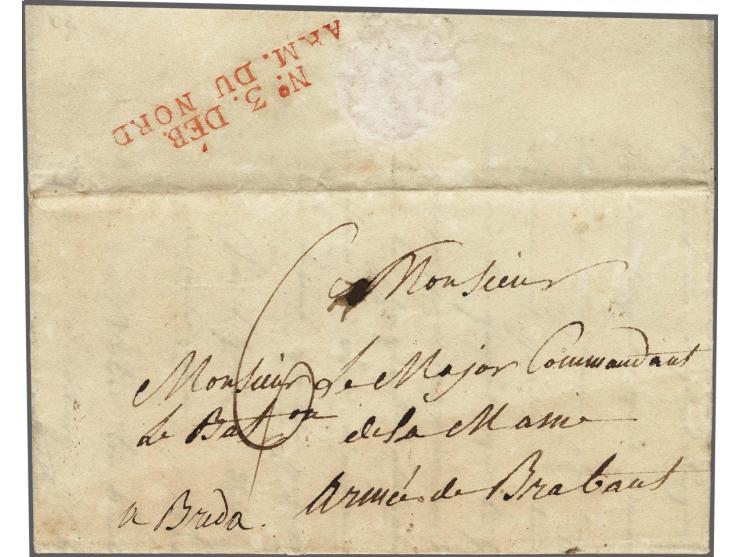 No. 3. DÉB.
ARM. DU NORD
A Monsieur
Monsieur Le Major Commandant
Le Baton de la Marne
Armée de Brabant
a Breda.